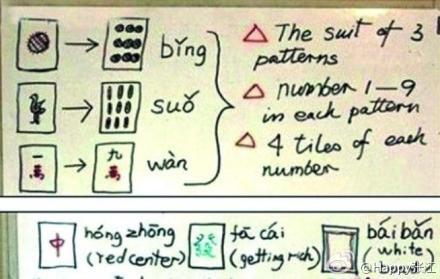 bǐng
suǒ
一萬
九萬
wàn
The suit of 3
patterns
number 1-9
in each pattern
4 tiles of each
number
中
hóng zhōng
(red center)
發
fā cái
(getting rich)
bái bǎn
(white